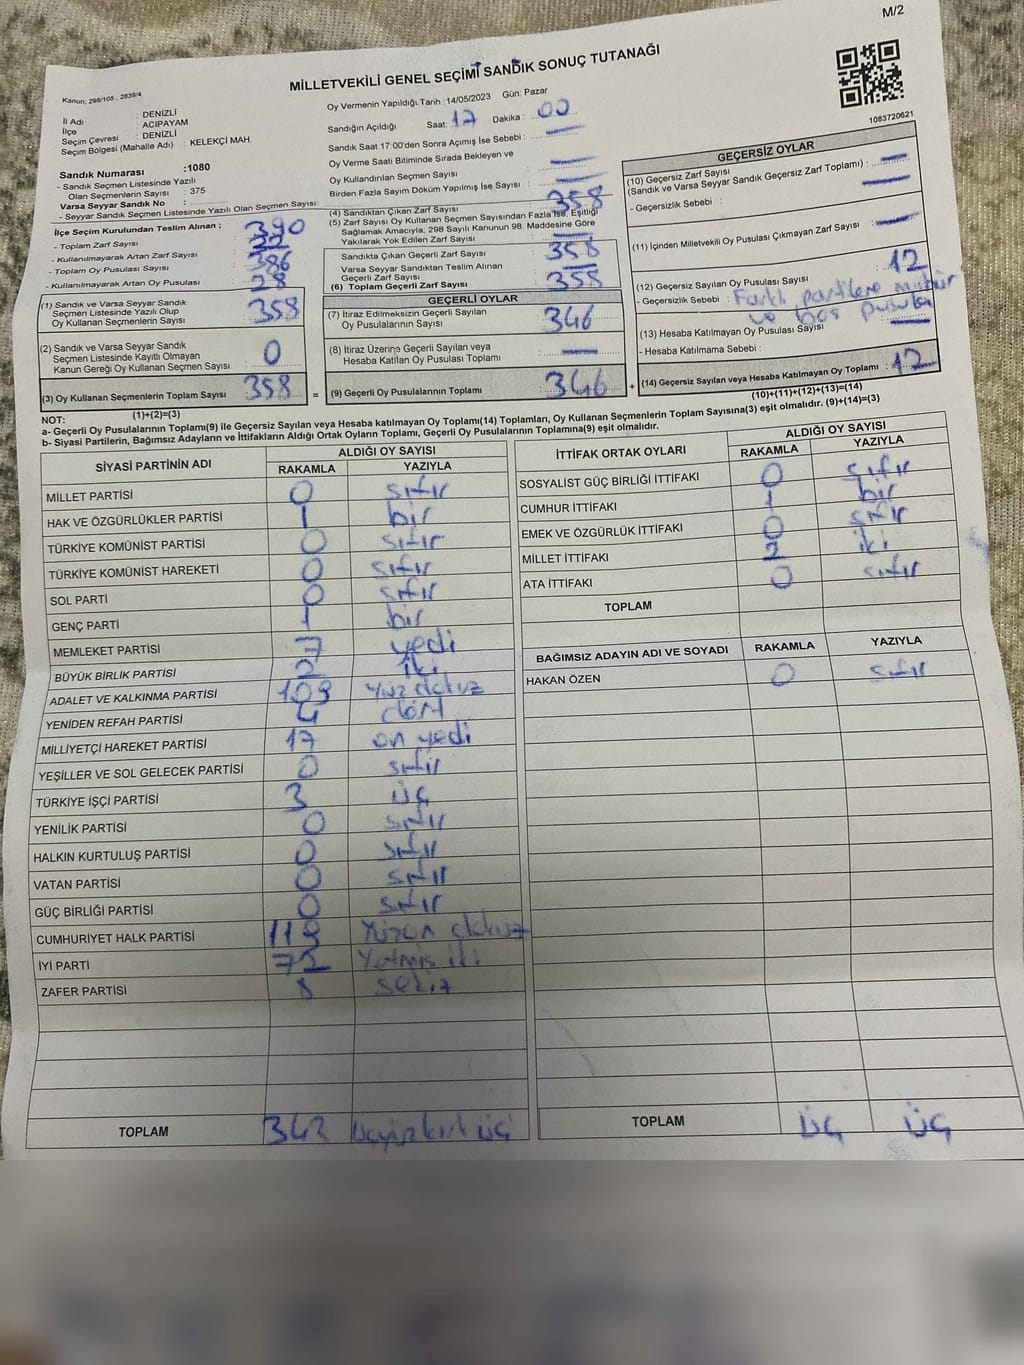 M/2
MİLLETVEKİLİ GENEL SEÇİMİ SANDIK SONUÇ TUTANAĞI
1063720621
Kanun: 298/105 , 2839/4
İl Adı : DENİZLİ
İlçe : ACIPAYAM
Seçim Çevresi : DENİZLİ
Seçim Bölgesi (Mahalle Adı) : KELEKÇİ MAH.
Sandık Numarası :1080
- Sandık Seçmen Listesinde Yazılı
Olan Seçmenlerin Sayısı : 375
Varsa Seyyar Sandık No :
- Seyyar Sandık Seçmen Listesinde Yazılı Olan Seçmen Sayısı:
Oy Vermenin Yapıldığı Tarih : 14/05/2023 Gün: Pazar
Sandığın Açıldığı Saat: 17 Dakika : 00
Sandık Saat 17:00'den Sonra Açımış İse Sebebi : —
Oy Verme Saati Bitiminde Sırada Bekleyen ve
Oy Kullandırılan Seçmen Sayısı : —
Birden Fazla Sayım Döküm Yapılmış İse Sayısı : —
İlçe Seçim Kurulundan Teslim Alınan ;
- Toplam Zarf Sayısı : 390
- Kullanılmayarak Artan Zarf Sayısı : 32
- Toplam Oy Pusulası Sayısı : 386
- Kullanılmayarak Artan Oy Pusulası : 28
(1) Sandık ve Varsa Seyyar Sandık
Seçmen Listesinde Yazılı Olup
Oy Kullanan Seçmenlerin Sayısı : 358
(2) Sandık ve Varsa Seyyar Sandık
Seçmen Listesinde Kayıtlı Olmayan
Kanun Gereği Oy Kullanan Seçmen Sayısı : 0
(3) Oy Kullanan Seçmenlerin Toplam Sayısı : 358 =
(1)+(2)=(3)
(4) Sandıktan Çıkan Zarf Sayısı : 358
(5) Zarf Sayısı Oy Kullanan Seçmen Sayısından Fazla İse, Eşitliği
Sağlamak Amacıyla, 298 Sayılı Kanunun 98. Maddesine Göre
Yakılarak Yok Edilen Zarf Sayısı : —
Sandıkta Çıkan Geçerli Zarf Sayısı : 358
Varsa Seyyar Sandıktan Teslim Alınan
Geçerli Zarf Sayısı : —
(6) Toplam Geçerli Zarf Sayısı : 358
GEÇERLİ OYLAR
(7) İtiraz Edilmeksizin Geçerli Sayılan
Oy Pusulalarının Sayısı : 346
(8) İtiraz Üzerine Geçerli Sayılan veya
Hesaba Katılan Oy Pusulası Toplamı : —
(9) Geçerli Oy Pusulalarının Toplamı : 346 +
GEÇERSİZ OYLAR
(10) Geçersiz Zarf Sayısı
(Sandık ve Varsa Seyyar Sandık Geçersiz Zarf Toplamı) : —
- Geçersizlik Sebebi : —
(11) İçinden Milletvekili Oy Pusulası Çıkmayan Zarf Sayısı : —
(12) Geçersiz Sayılan Oy Pusulası Sayısı : 12
- Geçersizlik Sebebi : Farklı partilere mühür
ve boş pusula
(13) Hesaba Katılmayan Oy Pusulası Sayısı : —
- Hesaba Katılmama Sebebi :
(14) Geçersiz Sayılan veya Hesaba Katılmayan Oy Toplamı : 12
(10)+(11)+(12)+(13)=(14)
NOT:
a- Geçerli Oy Pusulalarının Toplamı(9) ile Geçersiz Sayılan veya Hesaba katılmayan Oy Toplamı(14) Toplamları, Oy Kullanan Seçmenlerin Toplam Sayısına(3) eşit olmalıdır. (9)+(14)=(3)
b- Siyasi Partilerin, Bağımsız Adayların ve İttifakların Aldığı Ortak Oyların Toplamı, Geçerli Oy Pusulalarının Toplamına(9) eşit olmalıdır.
SİYASİ PARTİNİN ADI ALDIĞI OY SAYISI
RAKAMLA YAZIYLA
MİLLET PARTİSİ 0 sıfır
HAK VE ÖZGÜRLÜKLER PARTİSİ 1 bir
TÜRKİYE KOMÜNİST PARTİSİ 0 sıfır
TÜRKİYE KOMÜNİST HAREKETİ 0 sıfır
SOL PARTİ 0 sıfır
GENÇ PARTİ 1 bir
MEMLEKET PARTİSİ 7 yedi
BÜYÜK BİRLİK PARTİSİ 2 iki
ADALET VE KALKINMA PARTİSİ 109 Yüz dokuz
YENİDEN REFAH PARTİSİ 4 dört
MİLLİYETÇİ HAREKET PARTİSİ 17 on yedi
YEŞİLLER VE SOL GELECEK PARTİSİ 0 sıfır
TÜRKİYE İŞÇİ PARTİSİ 3 üç
YENİLİK PARTİSİ 0 sıfır
HALKIN KURTULUŞ PARTİSİ 0 sıfır
VATAN PARTİSİ 0 sıfır
GÜÇ BİRLİĞİ PARTİSİ 0 sıfır
CUMHURİYET HALK PARTİSİ 119 Yüz on dokuz
İYİ PARTİ 72 Yetmiş iki
ZAFER PARTİSİ 8 sekiz
TOPLAM 343 üçyüz kırk üç
İTTİFAK ORTAK OYLARI ALDIĞI OY SAYISI
RAKAMLA YAZIYLA
SOSYALİST GÜÇ BİRLİĞİ İTTİFAKI 0 sıfır
CUMHUR İTTİFAKI 1 bir
EMEK VE ÖZGÜRLÜK İTTİFAKI 0 sıfır
MİLLET İTTİFAKI 2 iki
ATA İTTİFAKI 0 sıfır
TOPLAM
BAĞIMSIZ ADAYIN ADI VE SOYADI RAKAMLA YAZIYLA
HAKAN ÖZEN 0 sıfır
TOPLAM üç üç